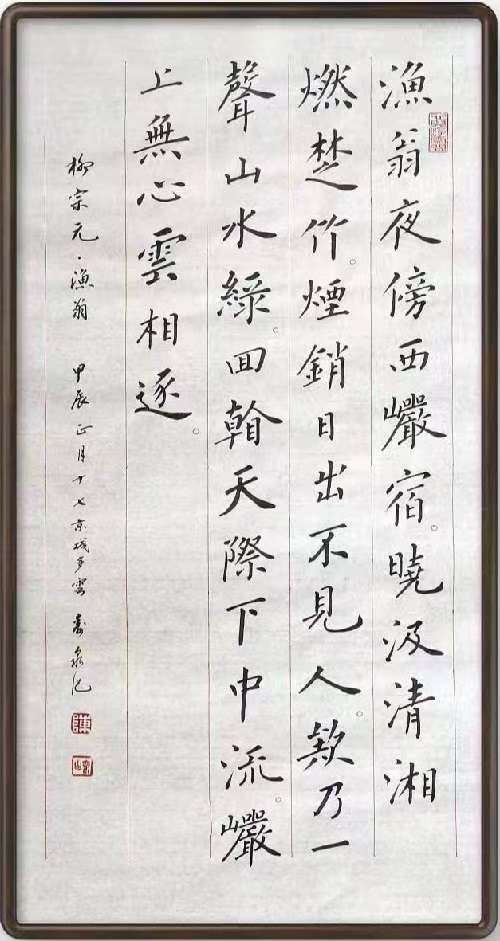 漁翁夜傍西巖宿。曉汲清湘
燃楚竹。煙銷日出不見人。欸乃一
聲山水綠。回翰天際下中流。巖
上無心雲相逐。
柳宗元·漁翁 甲辰正月十七京城多雲 記